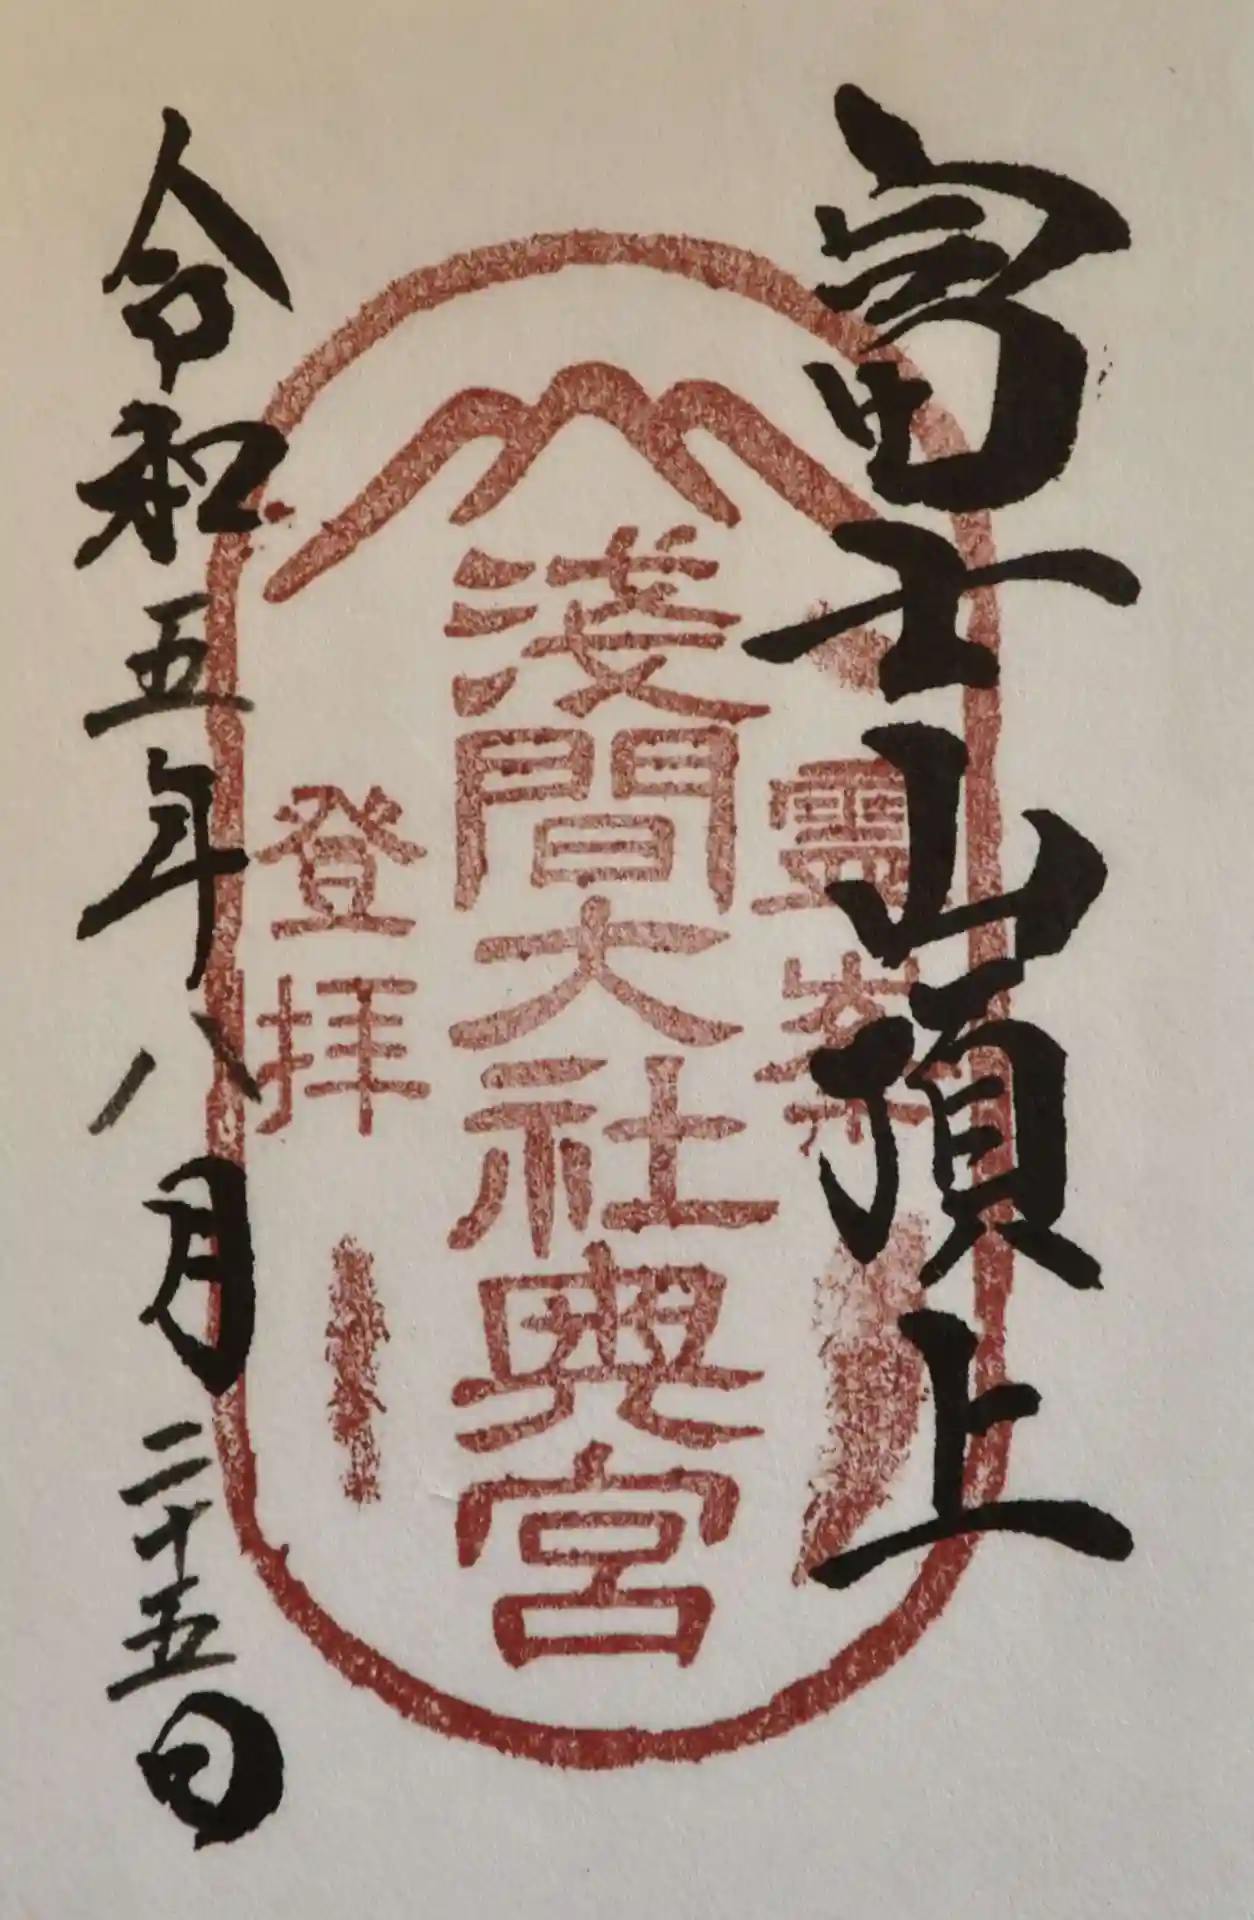 富士山頂上
霊峯
浅間大社奥宮
登拝
令和五年八月二十五日